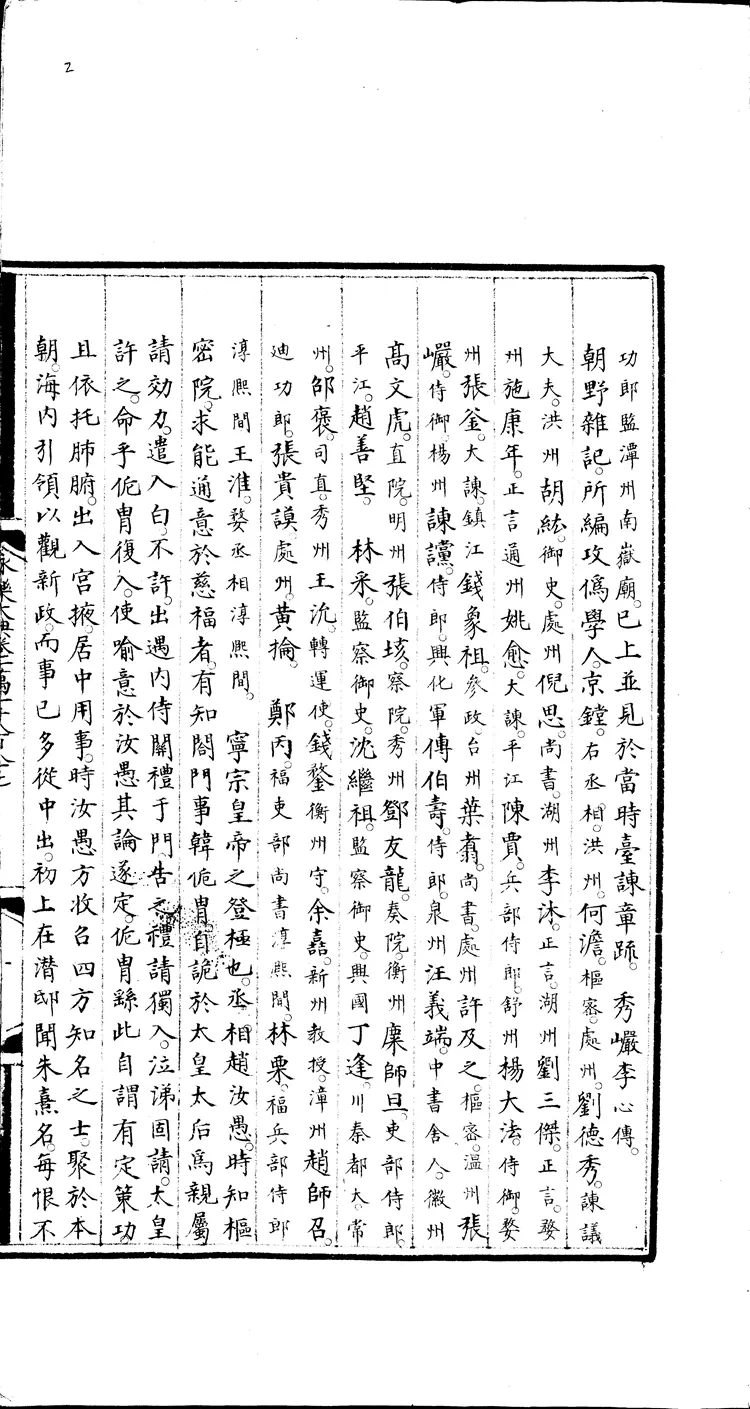 2
功郎監潭州南嶽廟。已上並見於當時臺諫章疏。秀巖李心傳。
朝野雜記。所編攻僞學人。京鏜。右丞相。洪州。何澹。樞密。處州。劉德秀。諫議
大夫。洪州胡紘。御史。處州倪思。尚書。湖州李沐。正言。湖州劉三傑。正言。婺
州施康年。正言通州姚愈。大諫。平江陳賈。兵部侍郎。舒州楊大法。侍御。婺
州張釜。大諫。鎮江錢象祖。參政。台州葉翥。尚書。處州許及之。樞密。溫州張
巖。侍御揚州諫讜。侍郎。興化軍傅伯壽。侍郎。泉州汪義端。中書舍人。徽州
高文虎。直院。明州張伯垓。察院。秀州鄧友龍。奏院。衡州糜師旦。吏部侍郎。
平江。趙善堅。林采。監察御史。沈繼祖。監察御史。興國丁逢。川秦都大。常
州。邵褒。司直。秀州王沇。轉運使。錢鍪衡州守。余嚞。新州教授。漳州趙師召。
迪功郎。張貴謨處州。黃掄。鄭丙。福吏部尚書淳熙間。林栗。福兵部侍郎
淳熙間王淮。婺丞相淳熙間。寧宗皇帝之登極也。丞相趙汝愚。時知樞
密院。求能通意於慈福者。有知閤門事韓侂胄自詭於太皇太后爲親屬
請効力。遣入白。不許。出遇内侍關禮于門告之。禮請獨入。泣涕固請。太皇
許之。命乎侂胄復入。使喻意於汝愚其論遂定。侂胄繇此自謂有定策功
且依托肺腑。出入宮掖。居中用事。時汝愚方收召四方知名之士。聚於本
朝。海内引領以觀新政。而事已多從中出。初上在潛邸聞朱熹名。每恨不
永樂大典卷一萬